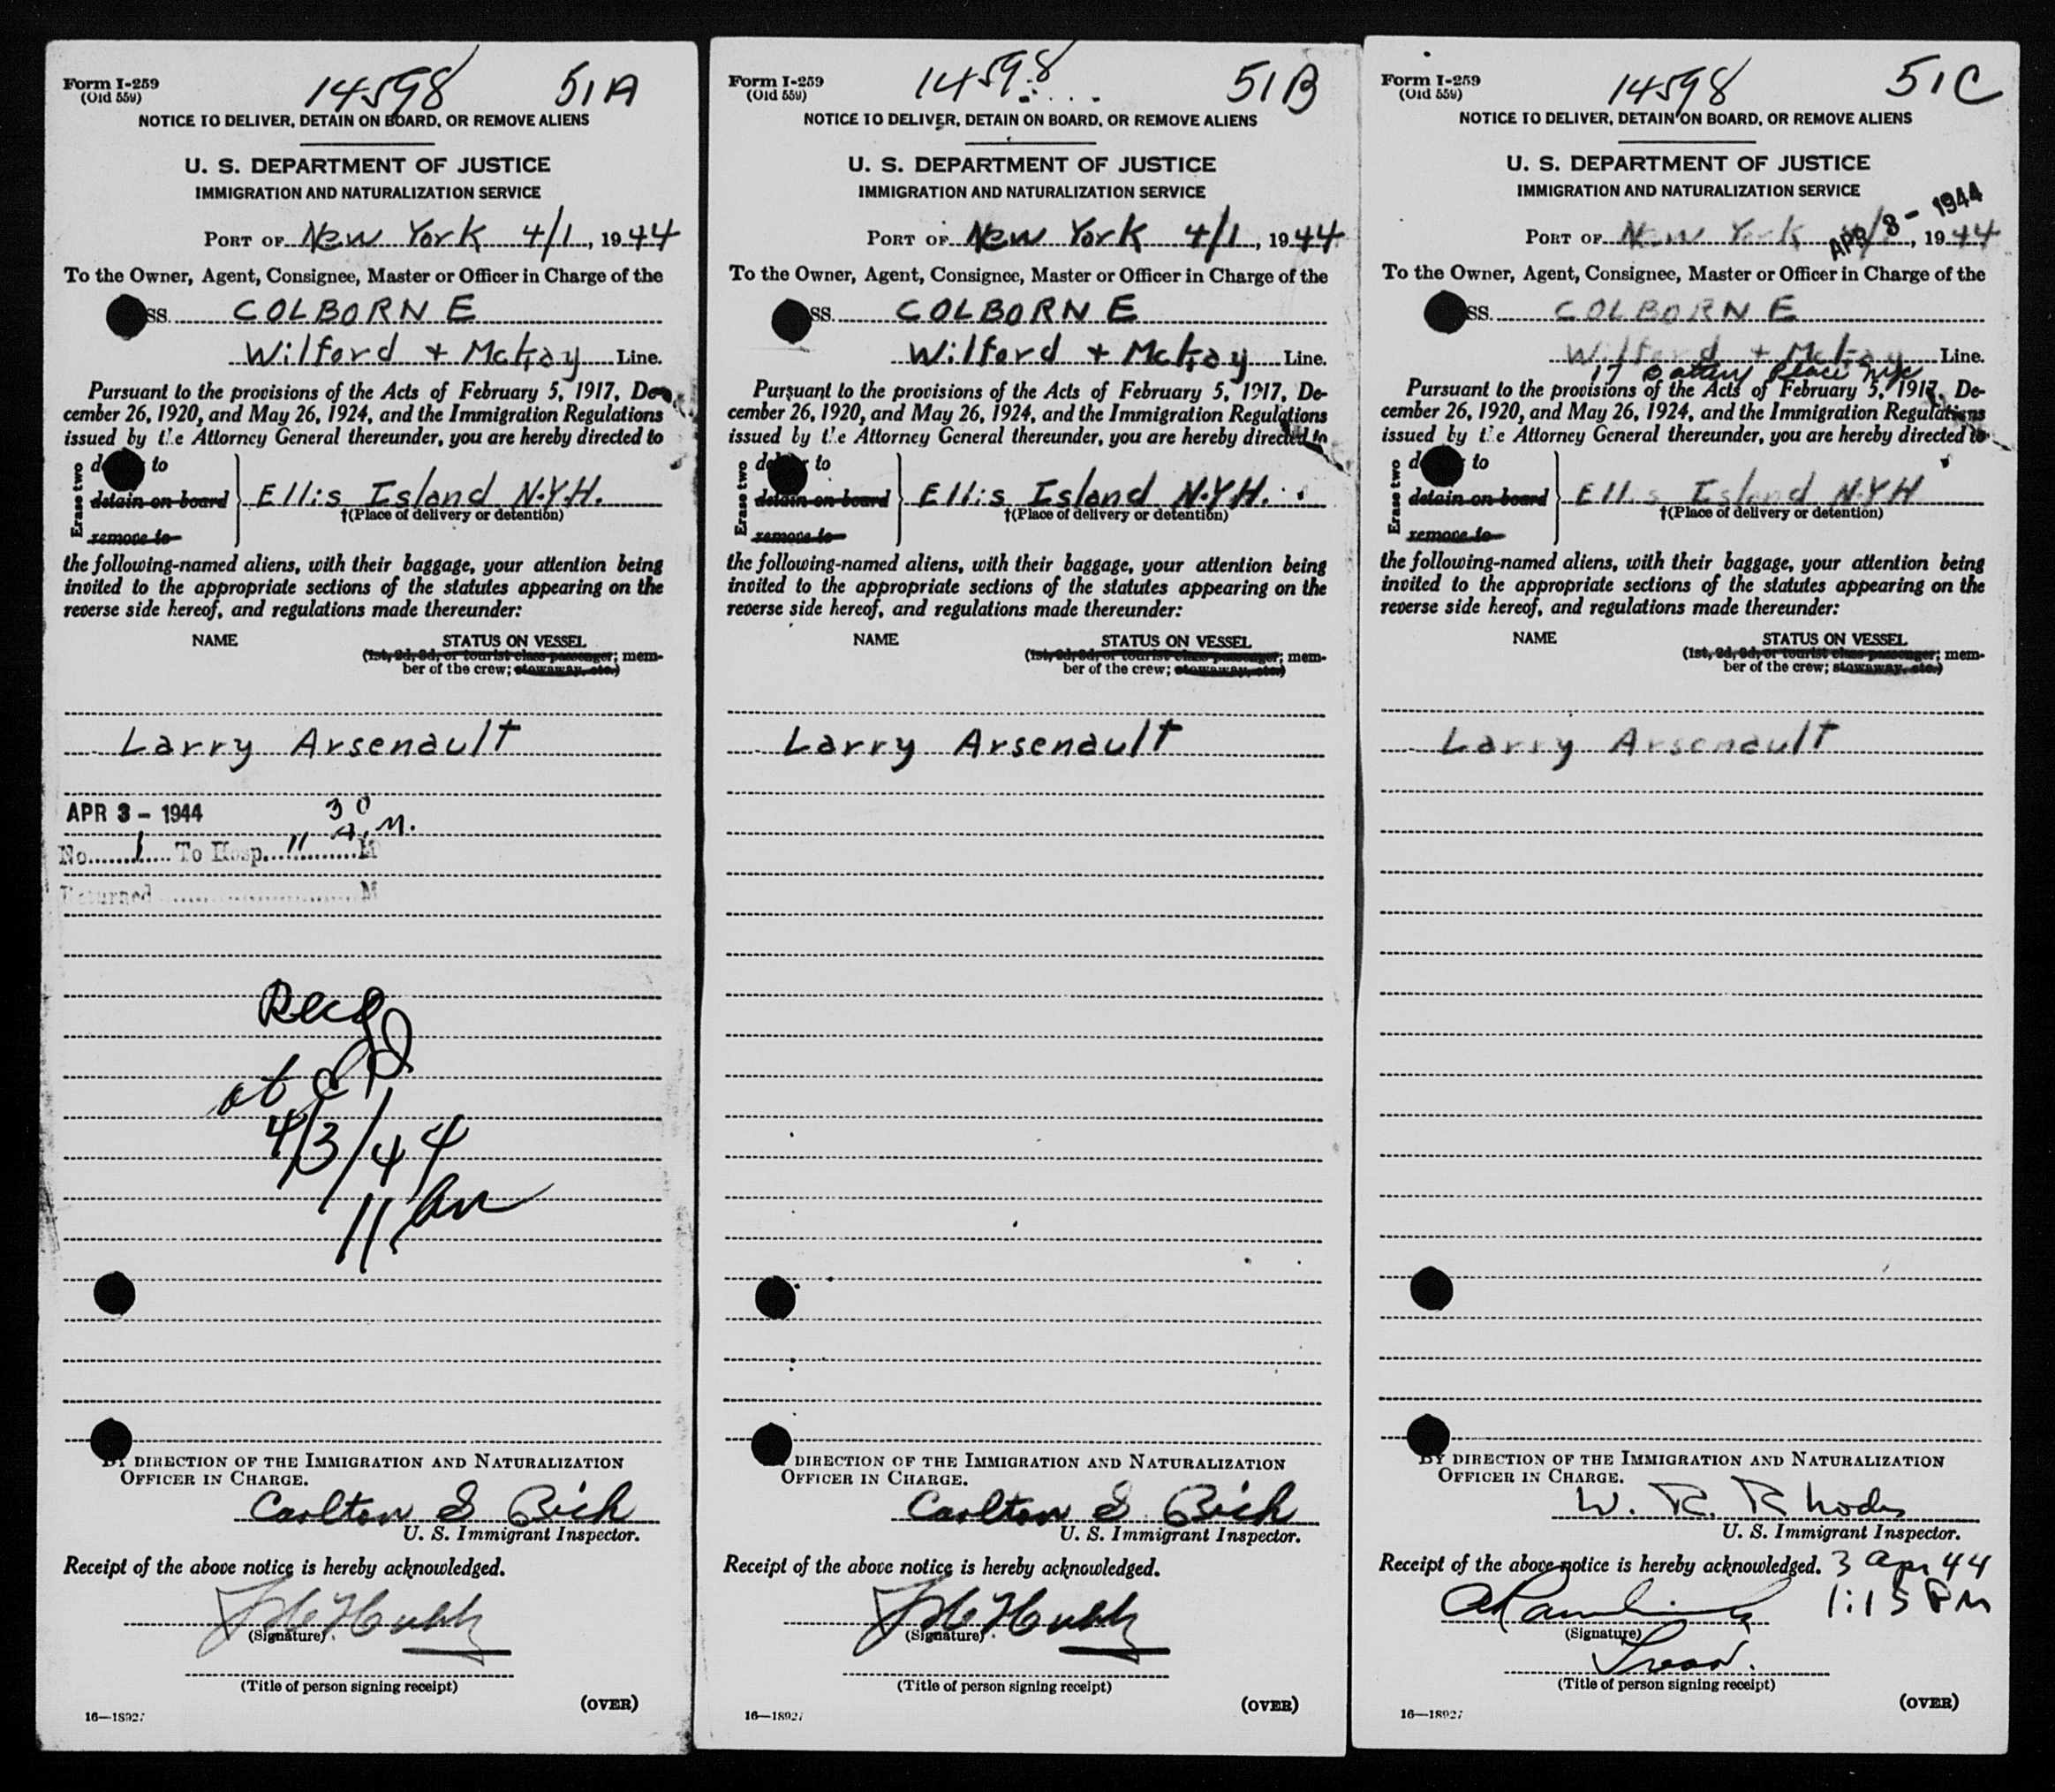 Form I-259
(Old 559)
14598 51A
NOTICE TO DELIVER, DETAIN ON BOARD, OR REMOVE ALIENS
U. S. DEPARTMENT OF JUSTICE
IMMIGRATION AND NATURALIZATION SERVICE
PORT OF New York 4/1, 1944
To the Owner, Agent, Consignee, Master or Officer in Charge of the
SS. COLBORNE
Wilford + McKay Line.
Pursuant to the provisions of the Acts of February 5, 1917, De-
cember 26, 1920, and May 26, 1924, and the Immigration Regulations
issued by the Attorney General thereunder, you are hereby directed to
Erase two
to
detain on board
remove to
Ellis Island N.Y.H.
†(Place of delivery or detention)
the following-named aliens, with their baggage, your attention being
invited to the appropriate sections of the statutes appearing on the
reverse side hereof, and regulations made thereunder:
NAME STATUS ON VESSEL
(1st, 2d, 3d, or tourist class passenger; mem-
ber of the crew; stowaway, etc.)
Larry Arsenault
APR 3 - 1944
30
A.M.
No. 1 To Hosp. 11 M
Returned M
Recd
at
4/3/44
11 am
BY DIRECTION OF THE IMMIGRATION AND NATURALIZATION
OFFICER IN CHARGE.
Carlton S Bich
U. S. Immigrant Inspector.
Receipt of the above notice is hereby acknowledged.
(Signature)
(Title of person signing receipt)
(OVER)
16—18927
Form I-259
(Old 559)
14598 51B
NOTICE TO DELIVER, DETAIN ON BOARD, OR REMOVE ALIENS
U. S. DEPARTMENT OF JUSTICE
IMMIGRATION AND NATURALIZATION SERVICE
PORT OF New York 4/1, 1944
To the Owner, Agent, Consignee, Master or Officer in Charge of the
SS. COLBORNE
Wilford + McKay Line.
Pursuant to the provisions of the Acts of February 5, 1917, De-
cember 26, 1920, and May 26, 1924, and the Immigration Regulations
issued by the Attorney General thereunder, you are hereby directed to
Erase two
to
detain on board
remove to
Ellis Island N.Y.H.
†(Place of delivery or detention)
the following-named aliens, with their baggage, your attention being
invited to the appropriate sections of the statutes appearing on the
reverse side hereof, and regulations made thereunder:
NAME STATUS ON VESSEL
(1st, 2d, 3d, or tourist class passenger; mem-
ber of the crew; stowaway, etc.)
Larry Arsenault
DIRECTION OF THE IMMIGRATION AND NATURALIZATION
OFFICER IN CHARGE.
Carlton S Bich
U. S. Immigrant Inspector.
Receipt of the above notice is hereby acknowledged.
(Signature)
(Title of person signing receipt)
(OVER)
16—18927
Form I-259
(Old 559)
14598 51C
NOTICE TO DELIVER, DETAIN ON BOARD, OR REMOVE ALIENS
U. S. DEPARTMENT OF JUSTICE
IMMIGRATION AND NATURALIZATION SERVICE
APR 3 - 1944
PORT OF New York, 1944
To the Owner, Agent, Consignee, Master or Officer in Charge of the
SS. COLBORNE
Wilford + McKay Line.
17 Battery Place NYC
Pursuant to the provisions of the Acts of February 5, 1917, De-
cember 26, 1920, and May 26, 1924, and the Immigration Regulations
issued by the Attorney General thereunder, you are hereby directed to
Erase two
to
detain on board
remove to
Ellis Island N.Y.H
†(Place of delivery or detention)
the following-named aliens, with their baggage, your attention being
invited to the appropriate sections of the statutes appearing on the
reverse side hereof, and regulations made thereunder:
NAME STATUS ON VESSEL
(1st, 2d, 3d, or tourist class passenger; mem-
ber of the crew; stowaway, etc.)
Larry Arsenault
BY DIRECTION OF THE IMMIGRATION AND NATURALIZATION
OFFICER IN CHARGE.
W. R. Rhodes
U. S. Immigrant Inspector.
Receipt of the above notice is hereby acknowledged. 3 Apr 44
1:15 PM
(Signature)
(Title of person signing receipt)
(OVER)
16—18927